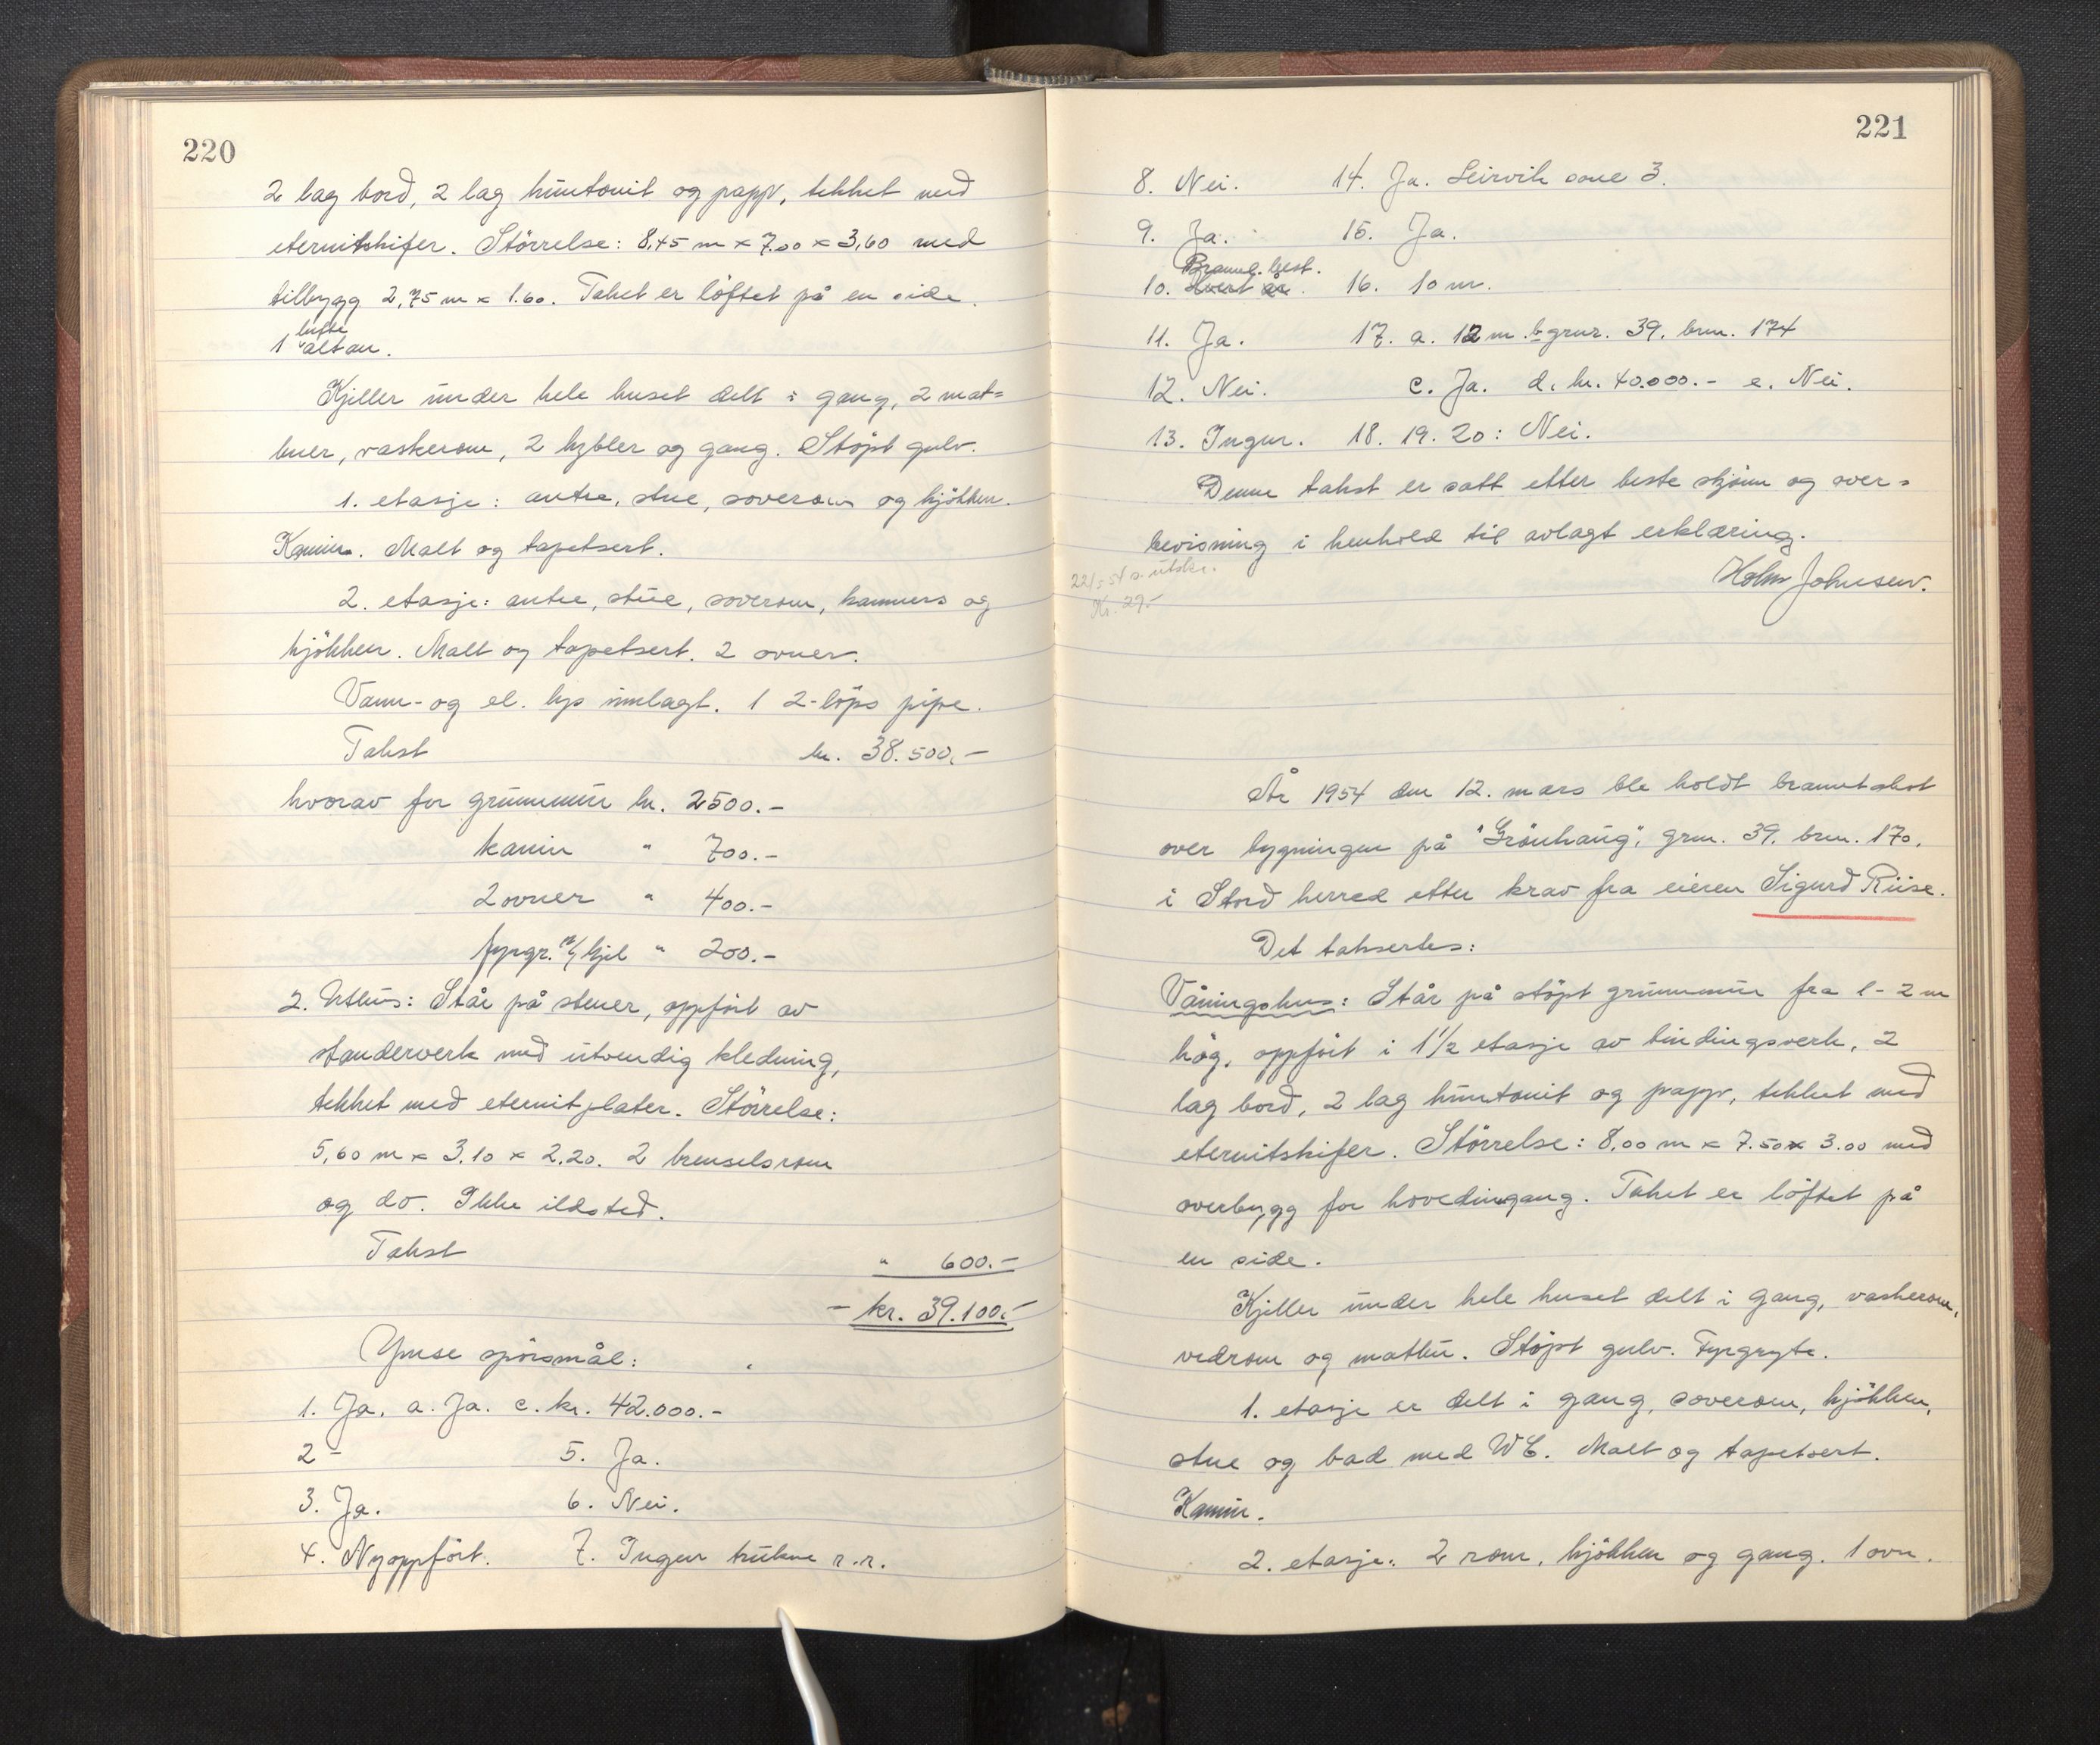 220
2 lag bord, 2 lag huntonit og papp, tekket med
eternitskifer. Störrelse: 8,45 m x 7.00 x 3,60 med
tilbygg 2,75 m x 1.60. Taket er löftet på en side.
lufte
1 altan.
Kjiller under hele huset delt i gang, 2 mat=
buer, vaskerom, 2 hybler og gang. Stöpt gulv.
1. etasje: antre, stue, soverom og kjökken.
Kamin. Malt og tapetsert.
2. etasje: antre, stue, soverom, kammers og
kjökken. Malt og tapetsert. 2 ovner.
Vann- og el. lys innlagt. 1 2-löps pipe.
Takst kr. 38.500,-
hvorav for grunnmur kr. 2500.-
kamin " 700.-
2 ovner " 400.-
fyrgr. m/kjel " 200.-
2. Uthus: Står på steuer, oppfört av
standerverk med utvendig kledning,
tekket med eternitplater. Störrelse:
5,60 m x 3.10 x 2.20. 2 brenselsrom
og do. Ikke ildsted.
Takst " 600.-
- kr. 39.100.-
Ymse spörsmål:
1. Ja. a. Ja. c. kr. 42.000.-
2 - 5. Ja.
3. Ja. 6. Nei.
4. Nyoppfört. 7. Ingen trukne r.r.
221
8. Nei. 14. Ja. Leirvik sone 3.
9. Ja. 15. Ja.
Brannb. best.
10. Hvert år. 16. 10 m.
11. Ja. 17. a. 12 m. b grnr. 39. brn. 174
12. Nei. c. Ja. d. kr. 40.000.- e. Nei.
13. Ingen. 18. 19. 20: Nei.
Denne takst er satt etter beste skjönn og over=
bevisning i henhold til avlagt erklæring.
22/5-54 s. utskr.
Kr. 29.-
Holm Johnsen.
År 1954 den 12. mars ble holdt branntakst
over bygningen på "Grönhaug", grn. 39. brn. 170.
i Stord herred etter krav fra eieren Sigurd Riise.
Det taksertes:
Våningshus: Står på stöpt grunnmur fra 1 - 2 m
hög, oppfört i 1 1/2 etasje av bindingsverk, 2
lag bord, 2 lag huntonit og papp, tekket med
eternitskifer. Störrelse: 8,00 m x 7.50 x 3.00 med
overbygg for hovedingang. Taket er löftet på
en side.
Kjiller under hele huset delt i gang, vaskerom,
vedrom og matbu. Stöpt gulv. Fyrgryte.
1. etasje er delt i gang, soverom, kjökken,
stue og bad med WC. Malt og tapetsert.
Kamin.
2. etasje: 2 rom, kjökken og gang. 1 ovn.